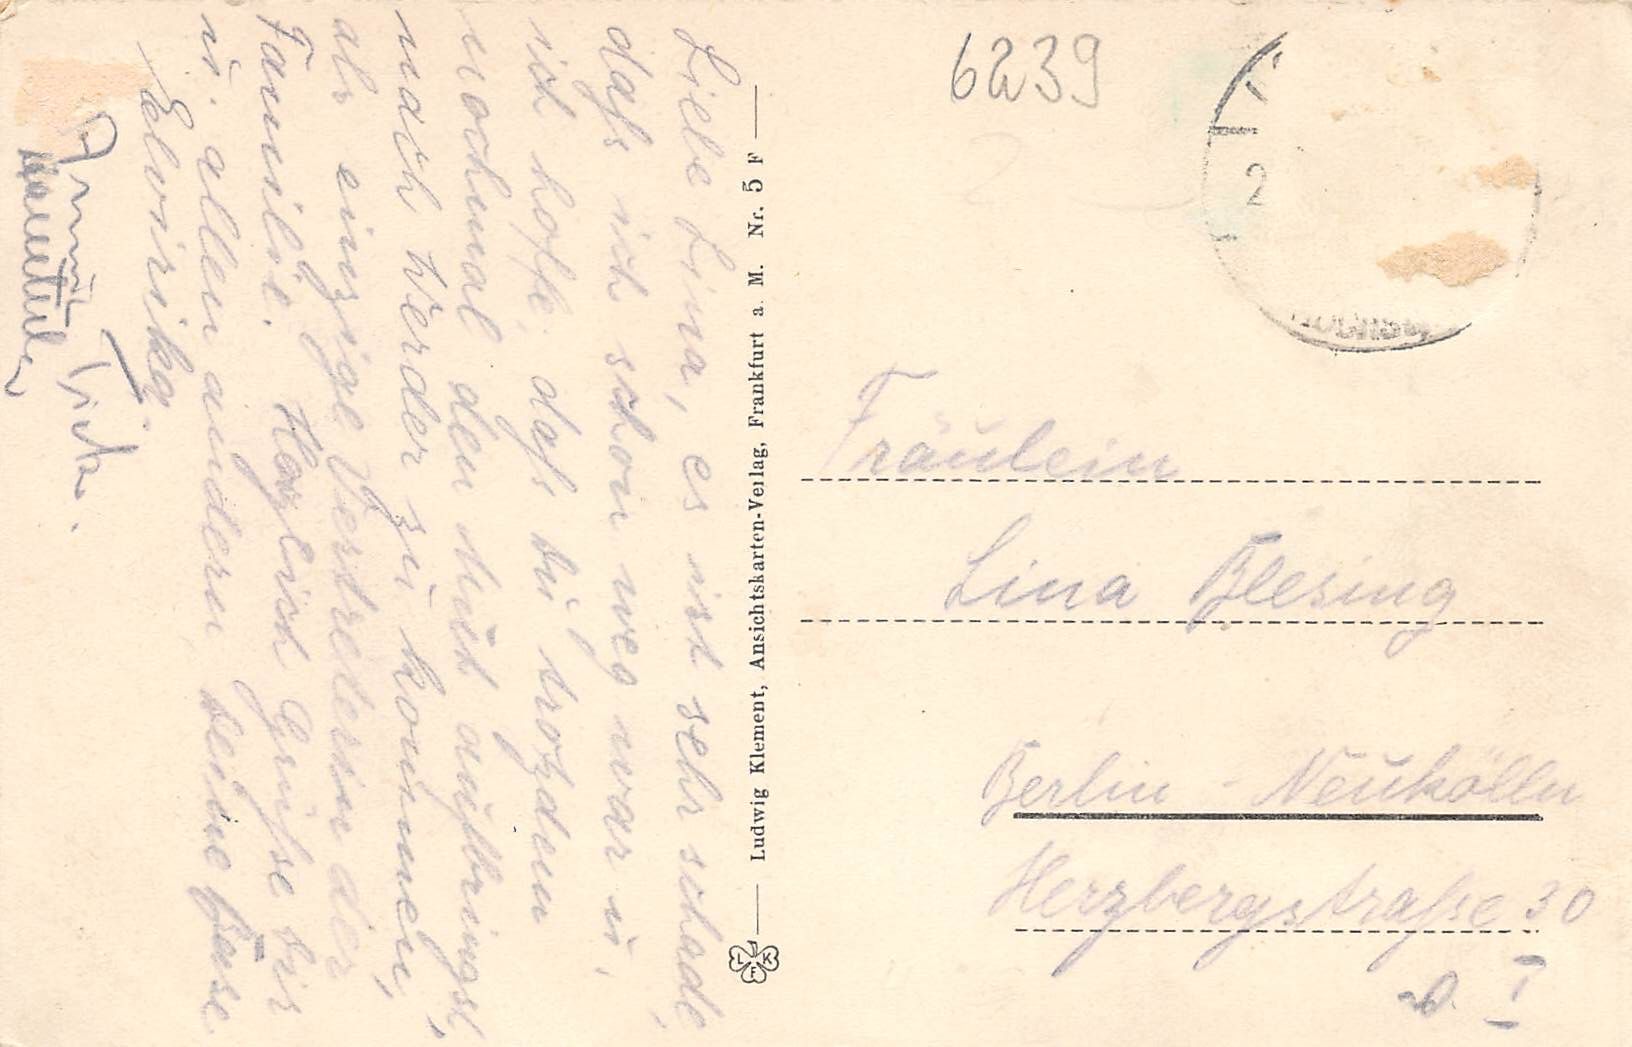 Liebe Lina, es ist sehr schade,
daß ich schon weg war u.
ich hoffe, daß du trotzdem
nochmal den Mut aufbringst,
nach Werder zu kommen,
als einzige Vertreterin der
Familie. Herzlich Grüße dir
u. allen anderen, deine Base
6239
2
Ludwig Klement, Ansichtskarten-Verlag, Frankfurt a. M. Nr. 5 F
L F K
Fräulein
Lina Blesing
Berlin - Neukölln
Herzbergstraße 30
I